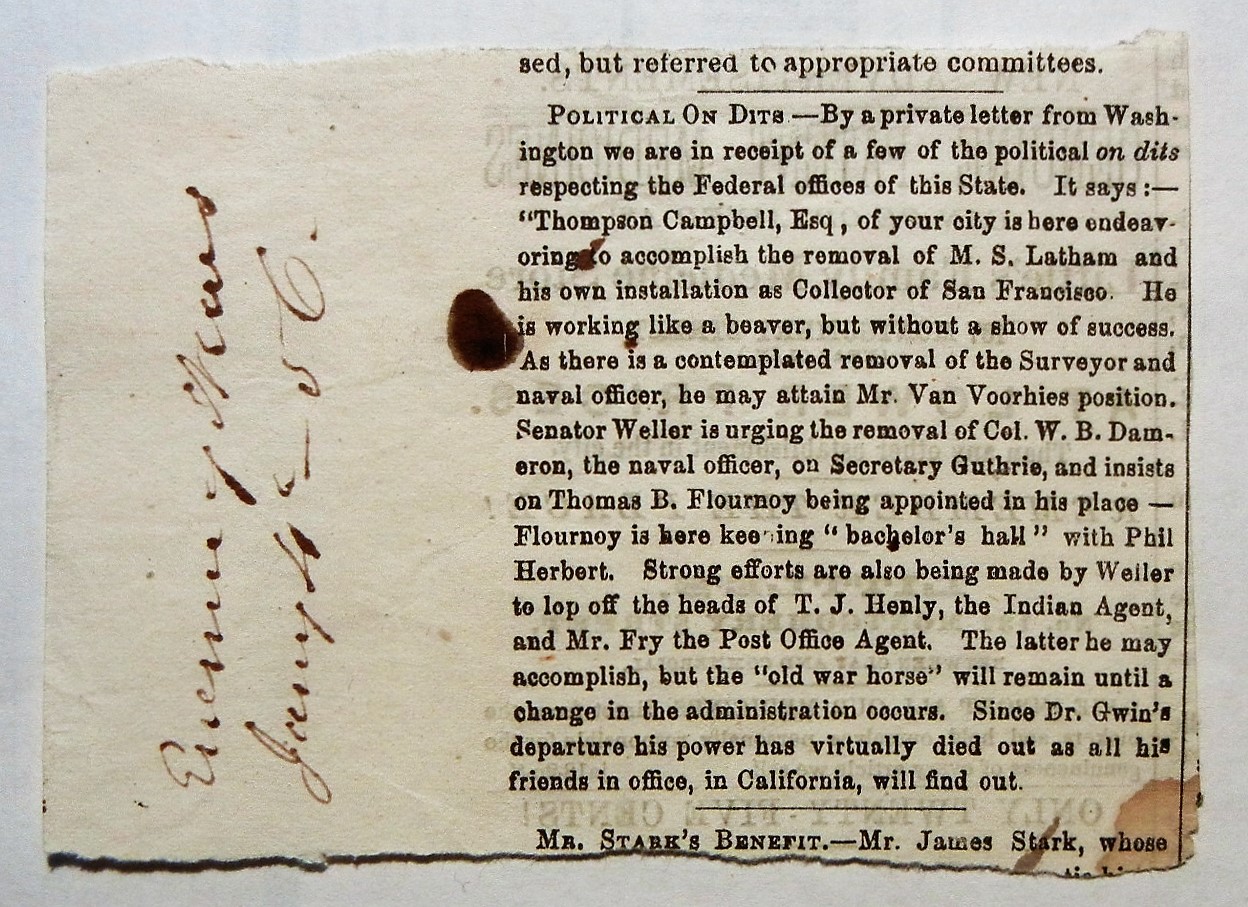 Evening News
Jany 4 - 56.
sed, but referred to appropriate committees.
POLITICAL ON DITS.—By a private letter from Wash-
ington we are in receipt of a few of the political on dits
respecting the Federal offices of this State. It says :—
"Thompson Campbell, Esq, of your city is here endeav-
oring to accomplish the removal of M. S. Latham and
his own installation as Collector of San Francisco. He
is working like a beaver, but without a show of success.
As there is a contemplated removal of the Surveyor and
naval officer, he may attain Mr. Van Voorhies position.
Senator Weller is urging the removal of Col. W. B. Dam-
eron, the naval officer, on Secretary Guthrie, and insists
on Thomas B. Flournoy being appointed in his place —
Flournoy is here keeping "bachelor's hall" with Phil
Herbert. Strong efforts are also being made by Weller
to lop off the heads of T. J. Henly, the Indian Agent,
and Mr. Fry the Post Office Agent. The latter he may
accomplish, but the "old war horse" will remain until a
change in the administration occurs. Since Dr. Gwin's
departure his power has virtually died out as all his
friends in office, in California, will find out.
MR. STARK'S BENEFIT.—Mr. James Stark, whose